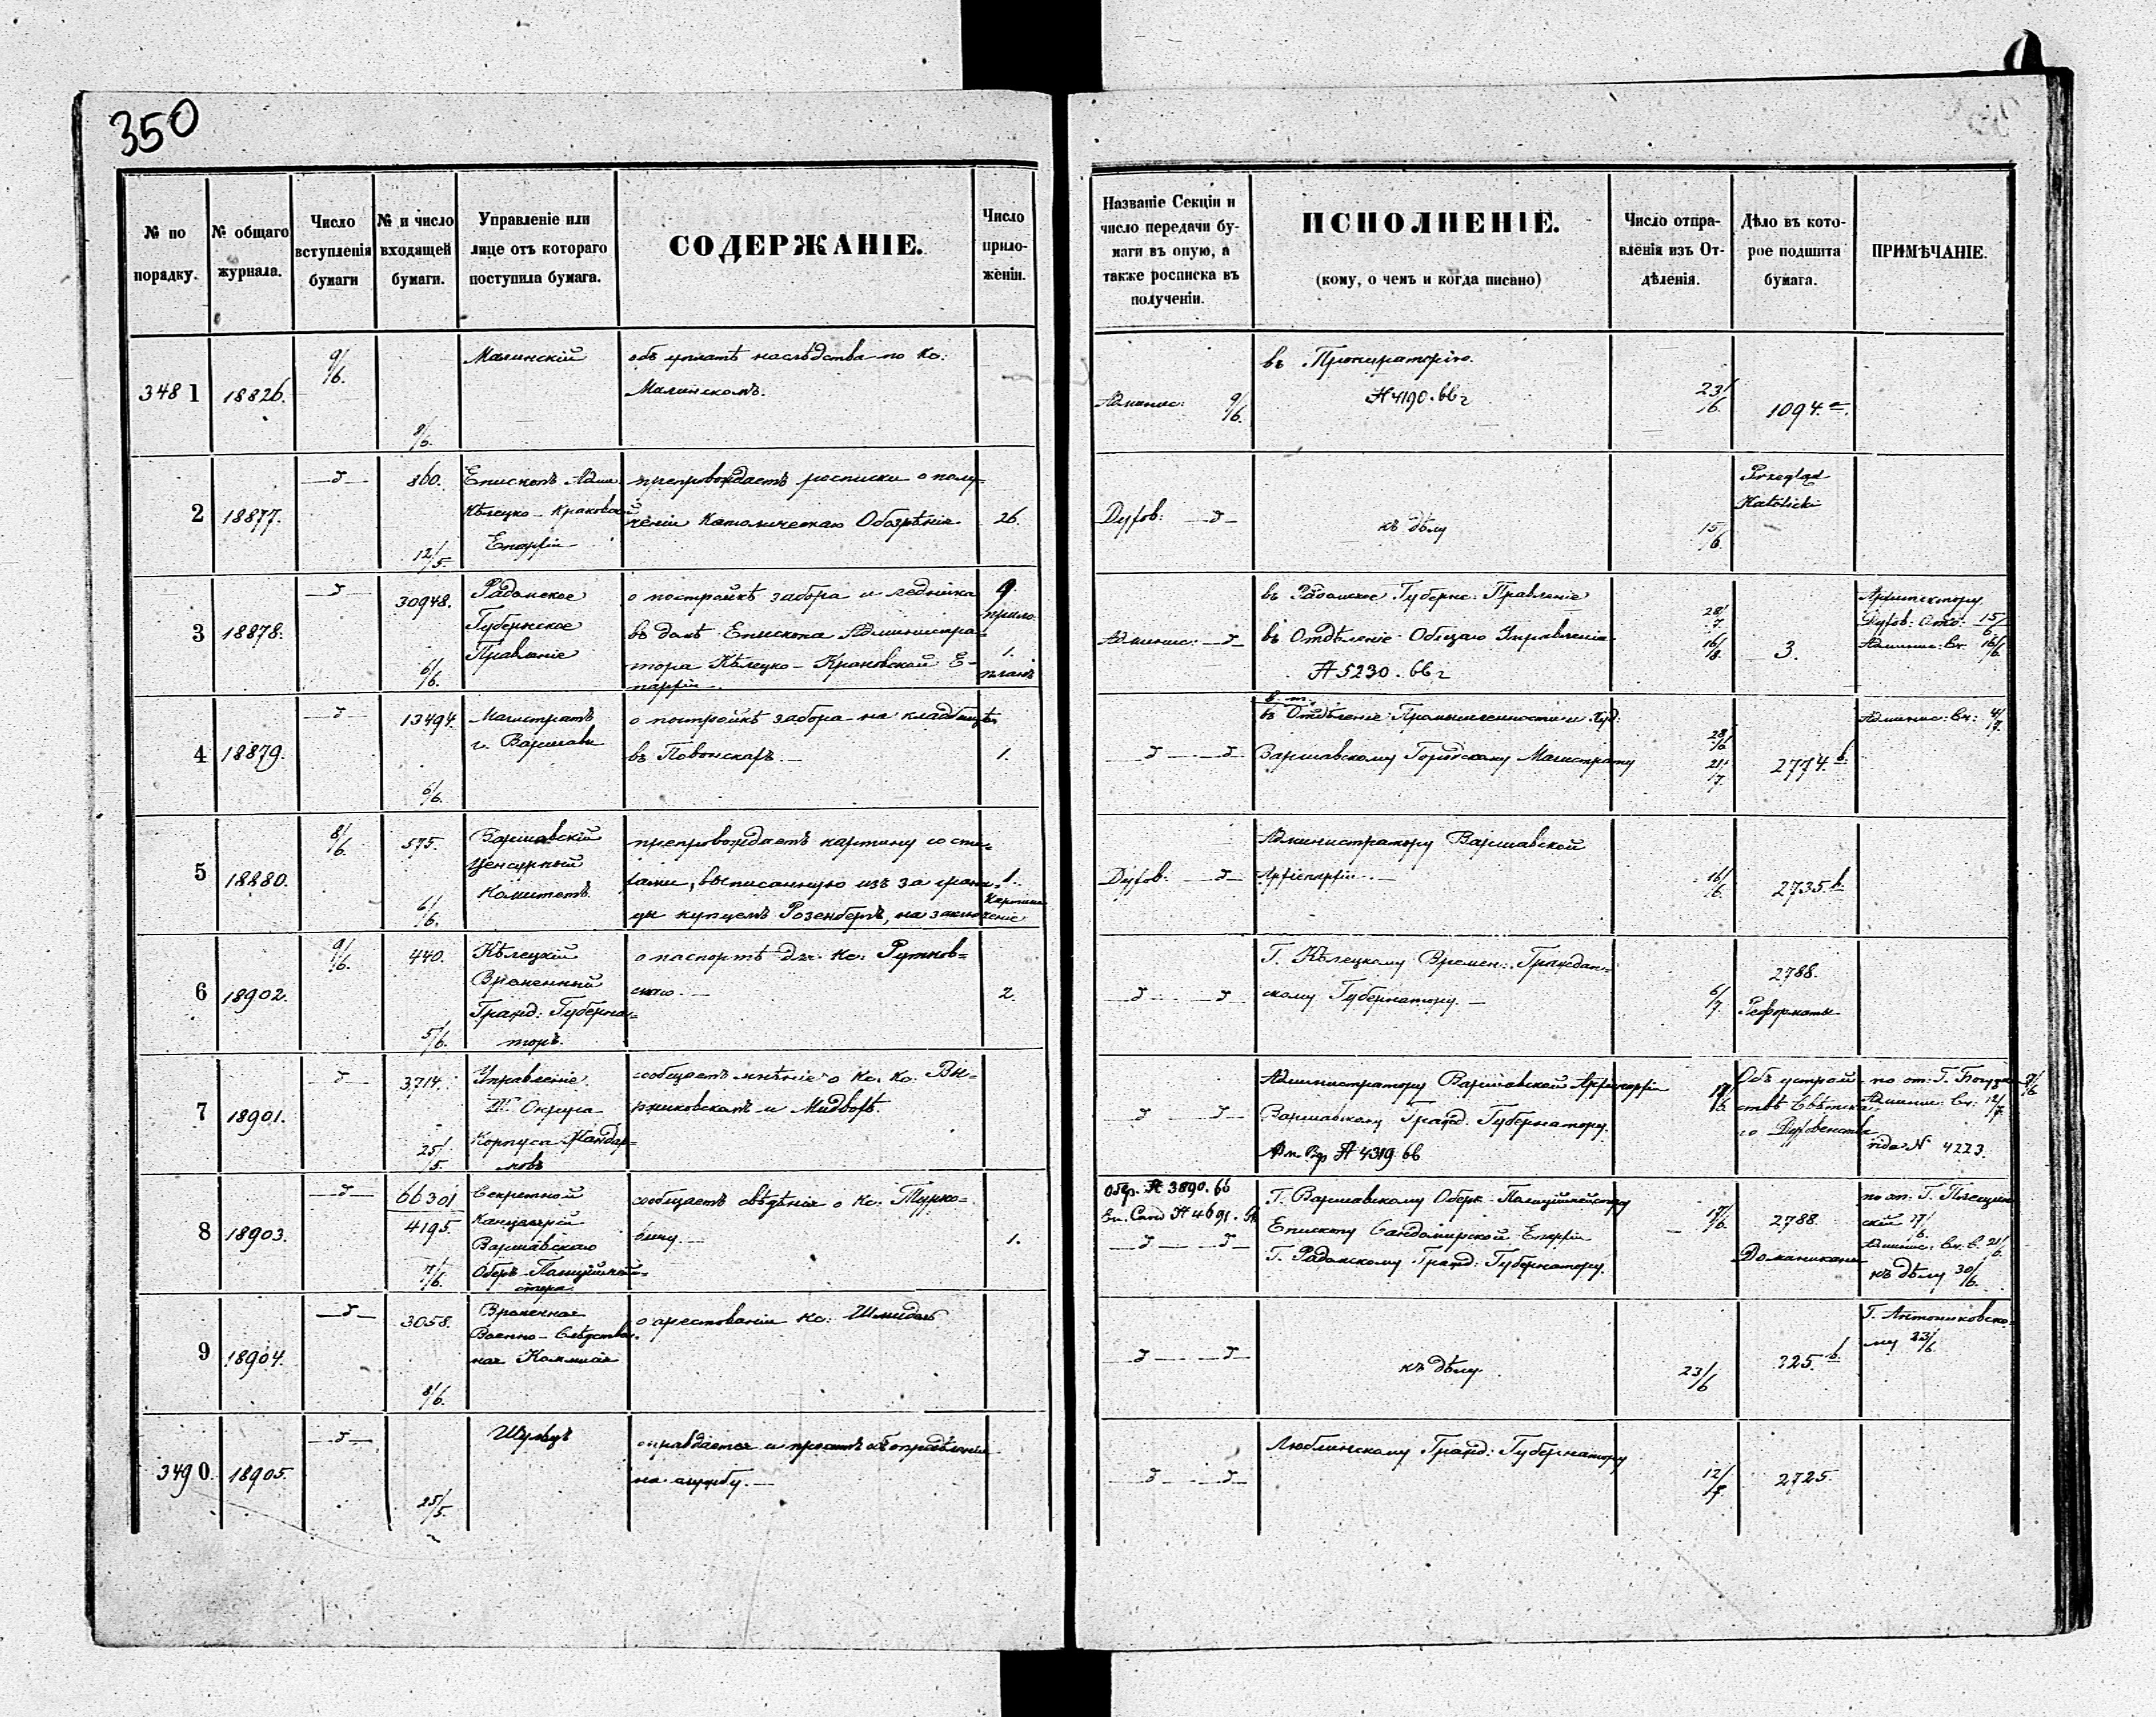 350
№ по порядку.
№ общаго журнала.
Число вступленія бумаги
№ и число входящей бумаги.
Управленіе или лице отъ котораго поступила бумага.
СОДЕРЖАНІЕ.
Число приложеній.
Названіе Секціи и число передачи бумаги въ оную, а также росписка въ полученіи.
ИСПОЛНЕНІЕ.
(кому, о чемъ и когда писано)
Число отправленія изъ Отдѣленія.
Дѣло въ которое подшита бумага.
ПРИМѢЧАНІЕ.
3481
18826.
9/6.
9/6.
Малинскій
объ уплатѣ наслѣдства по Кс:
Малинскомъ.
Админис: 9/6.
въ Прокураторію.
№ 4190. 66 г
23/6.
1094.
2
18877.
860.
12/5.
Епископъ Адми.
Кѣлецко-Краковской
Епархіи
препровождаетъ росписки о полу=
ченіи Католическаго Обозрѣнія
26.
Духов:
къ дѣлу
15/6.
Przegląd
Katolicki
3
18878.
30948.
6/6.
Радомское
Губернское
Правленіе
о постройкѣ забора и ледника
въ домѣ Епископа Администра=
тора Кѣлецко-Краковской Е=
пархіи.
9.
прило.
1.
планъ
Админис:
въ Радомское Губернс: Правленіе
въ Отдѣленіе Общаго Управленія
№ 5230. 66 г
28/7.
16/8.
3.
Архитектору
Духов: Отд: 15/6
Админис: Вч. 16/6
4
18879.
13494.
6/6.
Магистратъ
г. Варшавы
о постройкѣ забора на кладбищѣ
въ Повонскахъ.
1.
въ Отдѣленіе Промышленности и
Варшавскому Городскому Магистрату
28/6
21/7.
2774. b.
Админис: Вч: 4/7.
5
18880.
8/6.
575.
6/6.
Варшавскій
Ценсурный
Комитетъ.
препровождаетъ картину со сти=
хами, выписанную изъ за грани=
цы купцемъ Розенберъ, на заключеніе
1.
картина
Духов:
Администратору Варшавской
Архіепархіи.
16/6.
2735. b.
6
18902.
9/6.
440.
5/6.
Кѣлецкій
Временный
Гражд: Губерна=
торъ.
о паспортѣ для Кс: Рутков=
скаго.
2.
Г. Кѣлецкому Времен: Граждан=
скому Губернатору.
6/7.
2788.
Реформаты
7
18901.
3714.
25/5.
Управленіе
Округа
Корпуса Жандар=
мовъ
сообщаетъ мнѣніе о Кс. Кс: Вы=
и Мидвохъ.
Администратору Варшавской Архіепархіи
Варшавскому Гражд. Губернатору.
№ 4319. 66
17/6.
Объ устрой=
ствѣ Свѣтска=
го Духовенства
по от: Г.
Админис: Вч. 12/7.
vide N 4223.
8
18903.
66301
4195.
7/6.
Секретной
Канцеляріи
Варшавскаго
Оберъ-Полиціймей=
стера
сообщаетъ свѣдѣнія о Кс: Турко=
вичу.
1.
Обер. № 3890. 66
Еп. Санд № 4691.
Г. Варшавскому Оберъ-Полиціймейстеру
Епископу Сандомирской Епархіи
Г. Радомскому Гражд: Губернатору.
17/6.
2788.
Доминикани
по от: Г.
Админис: Вч. 21/6.
къ дѣлу 30/6.
9
18904.
3058.
8/6.
Временная
Военно-Слѣдствен=
ная Коммисія
о арестованіи Кс: Шмидтъ
къ дѣлу.
23/6
325. b.
Г. Антониковско=
му 23/6
3490.
18905.
25/5.
Шульцъ
оправдается и проситъ объ опредѣленіи
на службу.
Люблинскому Гражд: Губернатору
12/7.
2725.